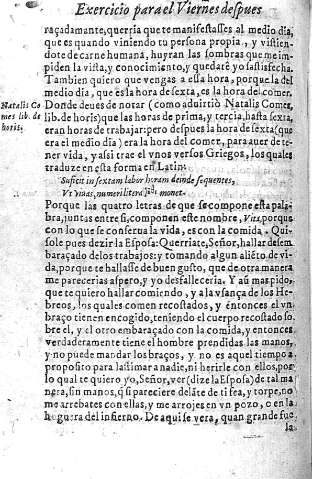 Exercicio para el Viernes despues
raçadamante, querria que te manifestasses al medio dia,
que es quando viniendo tu persona propia, y vistien-
dote de carne humana, huyran las sombras que me im-
piden la vista, y conocimiento, y quedarè yo satisfecha.
Tambien quiero que vengas a essa hora, porque la del
medio dia, que es la hora de sexta, es la hora del comer.
Natalis Co
mes lib. de
horis.
Donde deues de notar (como aduirtiò Natalis Comes,
lib. de horis) que las horas de prima, y tercia, hasta sexta,
eran horas de trabajar: pero despues la hora de sexta (que
era el medio dia) era la hora del comer, para auer de te-
ner vida, y assi trae el vnos versos Griegos, los quales
traduze en esta forma en Latin:
Suficit in sextam labor horam deinde sequentes,
Vt viuas, numeri litera monet.
Porque las quatro letras de que se compone esta pala-
bra, juntas entre si, componen este nombre, Vita, porque
con lo que se conserua la vida, es con la comida. Qui-
sole pues dezir la Esposa: Querriate, Señor, hallar desem
baraçado de los trabajos: y tomando algun aliéto de vi-
da, porque te hallasse de buen gusto, que de otra manera
me parecerias aspero, y yo desfalleceria. Y aũ mas pido,
que te quiero hallar comiendo, y a la vsança de los He-
breos, los quales comen recostados, y entonces el vn
braço tienen encogido, teniendo el cuerpo recostado so-
bre el, y el otro embaraçado con la comida, y entonces
verdaderamente tiene el hombre prendidas las manos,
y no puede mandar los braços, y no es aquel tiempo a
proposito para lastimar a nadie, ni herirle con ellos, por
lo qual te quiero yo, Señor, ver (dize la Esposa) de tal ma
nera, sin manos, q̃ si pareciere delãte de ti fea, y torpe, no
me arrebates con ellas, y me arrojes en vn pozo, o en la
hoguera del infierno. De aqui se vera, quan grande fue
la